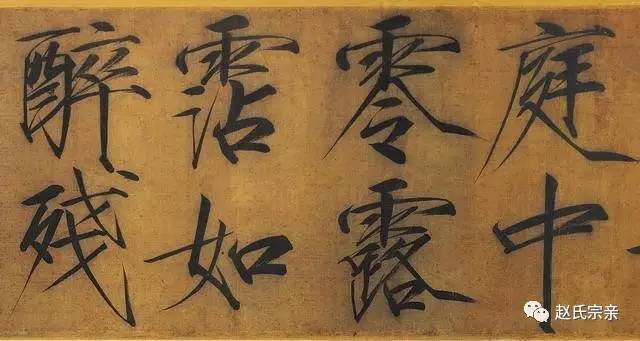 庭中
零露
霑如
醉殘
赵氏宗亲